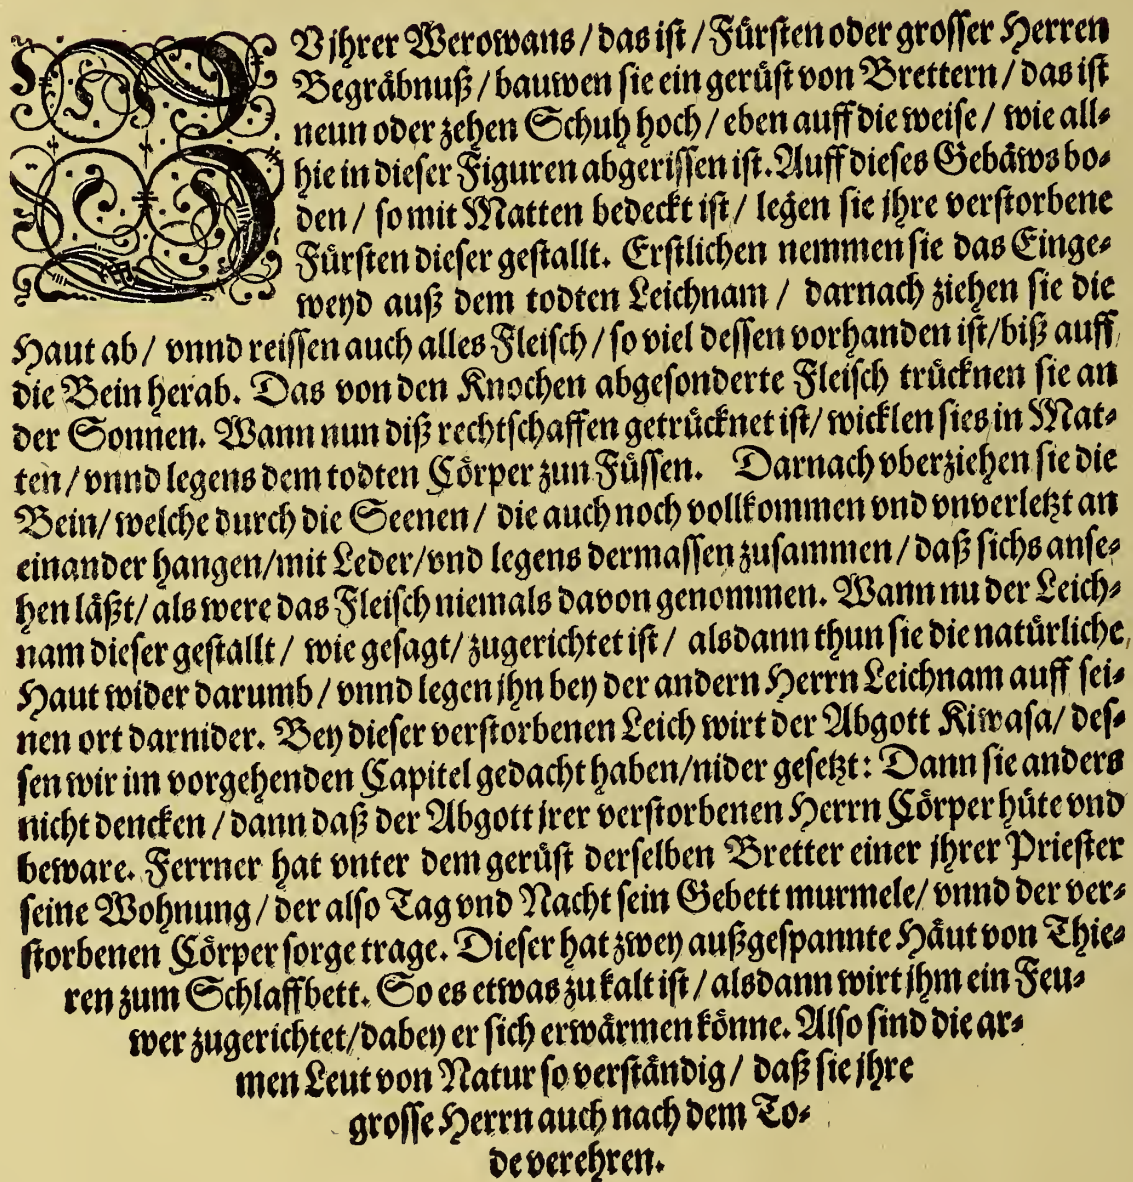 ZV jhrer Werowans / das iſt / Fürſten oder groſſer Herren
Begräbnuß / bauwen ſie ein gerüſt von Brettern / das iſt
neun oder zehen Schuh hoch / eben auff die weiſe / wie all⸗
hie in dieſer Figuren abgeriſſen iſt. Auff dieſes Gebäws bo⸗
den / ſo mit Matten bedeckt iſt / legen ſie jhre verſtorbene
Fürſten dieſer geſtallt. Erſtlichen nemmen ſie das Einge⸗
weyd auß dem todten Leichnam / darnach ziehen ſie die
Haut ab / vnnd reiſſen auch alles Fleiſch / ſo viel deſſen vorhanden iſt / biß auff
die Bein herab. Das von den Knochen abgeſonderte Fleiſch trücknen ſie an
der Sonnen. Wann nun diß rechtſchaffen getrücknet iſt / wicklen ſies in Mat⸗
ten / vnnd legens dem todten Cörper zun Füſſen. Darnach vberziehen ſie die
Bein / welche durch die Seenen / die auch noch vollkommen vnd vnverletzt an
einander hangen / mit Leder / vnd legens dermaſſen zuſammen / daß ſichs anſe⸗
hen läßt / als were das Fleiſch niemals davon genommen. Wann nu der Leich⸗
nam dieſer geſtallt / wie geſagt / zugerichtet iſt / alsdann thun ſie die natürliche
Haut wider darumb / vnnd legen jhn bey der andern Herrn Leichnam auff ſei⸗
nen ort darnider. Bey dieſer verſtorbenen Leich wirt der Abgott Kiwaſa / deſ⸗
ſen wir im vorgehenden Capitel gedacht haben / nider geſetzt: Dann ſie anders
nicht dencken / dann daß der Abgott jrer verſtorbenen Herrn Cörper hüte vnd
beware. Ferrner hat vnter dem gerüſt derſelben Bretter einer jhrer Prieſter
ſeine Wohnung / der alſo Tag vnd Nacht ſein Gebett murmele / vnnd der ver⸗
ſtorbenen Cörper ſorge trage. Dieſer hat zwey außgeſpannte Häut von Thie⸗
ren zum Schlaffbett. So es etwas zu kalt iſt / alsdann wirt jhm ein Feu⸗
wer zugerichtet / dabey er ſich erwärmen könne. Alſo ſind die ar⸗
men Leut von Natur ſo verſtändig / daß ſie jhre
groſſe Herrn auch nach dem To⸗
de verehren.